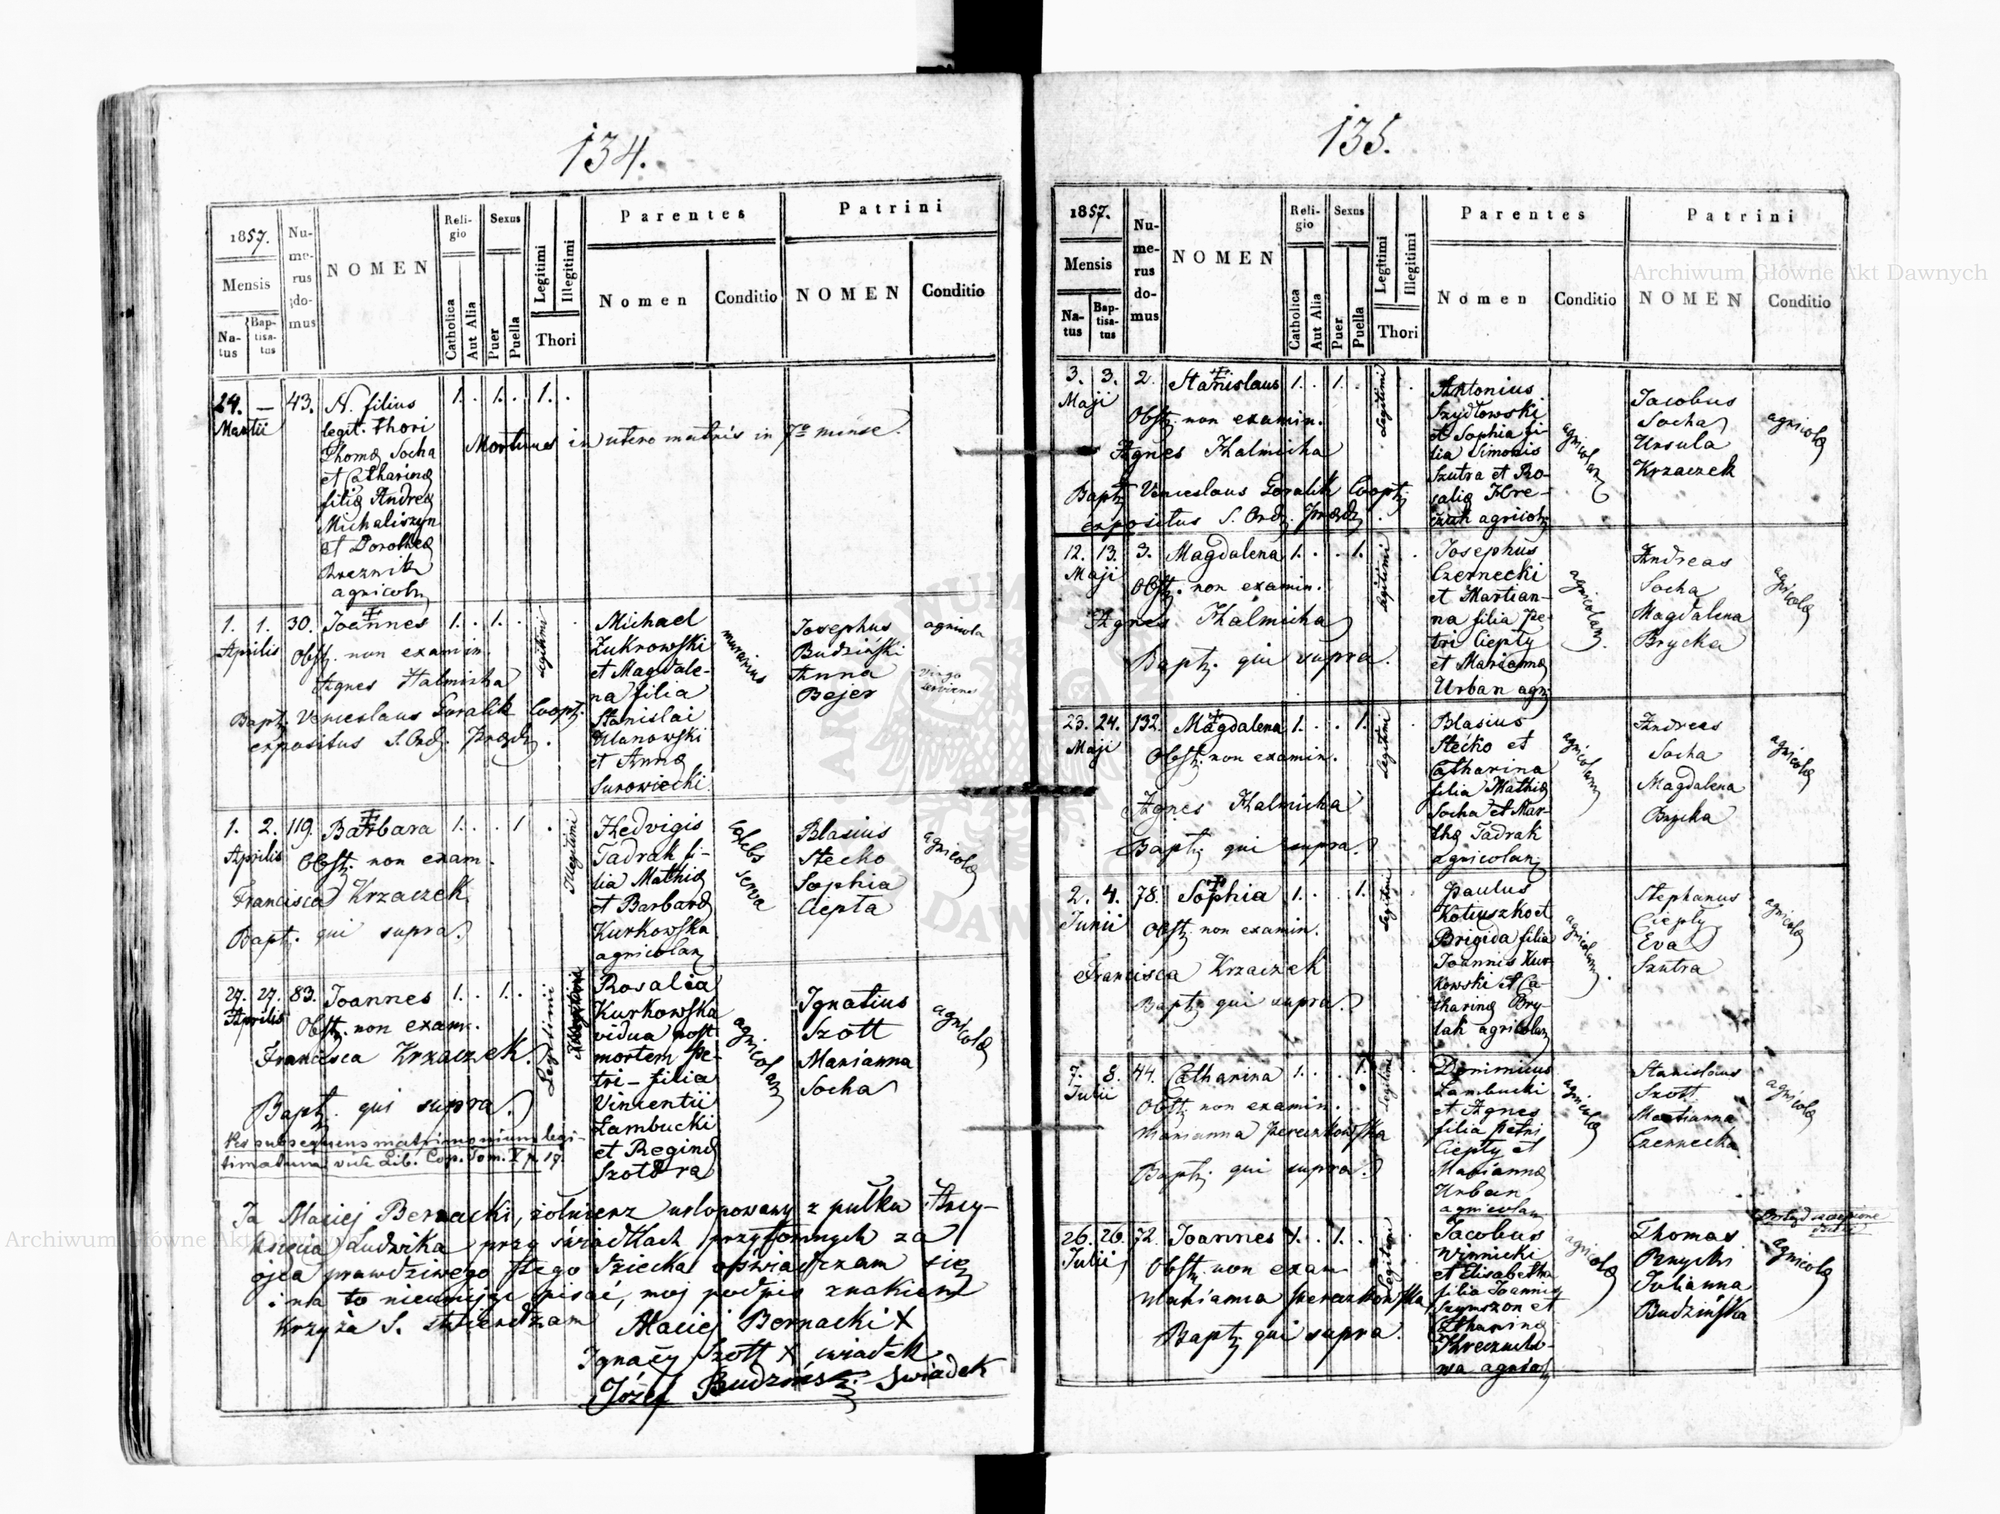 134.
1857.
Mensis
Na-
tus
Bap-
tisa-
tus
Nu-
me-
rus
do-
mus
NOMEN
Reli-
gio
Catholica
Aut Alia
Sexus
Puer
Puella
Legitimi
Illegitimi
Thori
Parentes
Nomen
Conditio
Patrini
NOMEN
Conditio
24. — 43. N. filius 1. . 1. . 1. .
Martii
legit. thori
Thomæ Socha
et Catharinæ
filiæ Andreæ
Michaliszyn
et Dorotheæ
agricolar
Mortuus in utero matris in 7o mense.
1. 1. 30. Joannes 1. . 1. .
Aprilis
Obst. non examin.
Agnes Halmicha
Bapt. Venceslaus Goralik Coopt.
expositus S. Ord. Præd.
legitimi
Michael
Żukrowski
et Magdale-
na filia
Stanislai
Ulanowski
et Annæ
Surowiecki
murarius
Josephus
Budziński
Anna
Bejer
agricola
Virgo
serviens
1. 2. 119. Barbara 1. . . 1 .
Aprilis
Obst. non exam.
Francisca Krzaczek
Bapt. qui supra.
Illegitimi
Hedvigis
Jadrak fi-
lia Mathiæ
et Barbaræ
Kurkowska
agricolar
cælebs serva
Blasius
Stecko
Sophia
Ciepta
agricolæ
27. 27. 83. Joannes 1. . 1. .
Aprilis
Obst. non exam.
Francisca Krzaczek
Bapt. qui supra.
Per subsequens matrimonium legi-
timatum vide Lib. Cop. Tom. V p. 17.
Legitimi
Rosalia
Kurkowska
vidua post
mortem Pe-
tri – filia
Vincentii
Łambucki
et Reginæ
Szott
agricolar
Ignatius
Szott
Marianna
Socha
agricolæ
Ja Maciej Bernacki, żołnierz urlopowany z pułku Arcy-
Księcia Ludwika przy świadkach przytomnych za
ojca prawdziwego tego dziecka oświadczam się
i na to nieumiejąc pisać, moj podpis znakiem
Krzyża S. stwierdzam Maciej Bernacki X
Ignacy Szott X swiadek
Józef Budzinski Swiadek
135.
1857.
Mensis
Na-
tus
Bap-
tisa-
tus
Nu-
me-
rus
do-
mus
NOMEN
Reli-
gio
Catholica
Aut Alia
Sexus
Puer
Puella
Legitimi
Illegitimi
Thori
Parentes
Nomen
Conditio
Patrini
NOMEN
Conditio
3. 3. 2. Stanislaus 1. . 1. .
Maji
Obst. non examin.
Agnes Halmicha
Bapt. Venceslaus Goralik Coopt.
expositus S. Ord. Præd.
Legitimi
Antonius
Szydłowski
et Sophia fi-
lia Simonis
Szutra et Ro-
saliæ Hre-
czuch agricol.
agricolar
Jacobus
Socha
Ursula
Krzaczek
agricolæ
12. 13. 3. Magdalena 1. . . 1.
Maji
Obst. non examin.
Agnes Halmicha
Bapt. qui supra.
Legitimi
Josephus
Czernecki
et Martian-
na filia Pe-
tri Ciepty
et Mariannæ
Urban agr.
agricolar.
Andreas
Socha
Magdalena
Brycka
agricolæ
23. 24. 132. Magdalena 1. . . 1.
Maji
Obst. non examin.
Agnes Halmicha
Bapt. qui supra.
Legitimi
Blasius
Stecko et
Catharina
filia Mathiæ
Socha et Mar-
thæ Jadrak
agricolar
agricolarum
Andreas
Socha
Magdalena
Brycka
agricolæ
2. 4. 78. Sophia 1. . . 1.
Junii
Obst. non examin.
Francisca Krzaczek
Bapt. qui supra.
Legitimi
Paulus
Kotuszko et
Brigida filia
Joannis Kur-
kowski et Ca-
tharinæ Bry-
lak agricolar
agricolarum.
Stephanus
Ciepły
Eva
Szutra
agricolæ
7. 8. 44. Catharina 1. . . 1.
Julii
Obst. non examin.
Marianna Pereczkowska
Bapt. qui supra.
Legitimi
Dominicus
Łambucki
et Agnes
filia Petri
Ciepty et
Mariannæ
Urban
agricolar
agricolæ
Stanislaus
Szott
Martianna
Czernecka
agricolæ
26. 26. 72. Joannes 1. . 1. .
Julii
Obst. non exam.
Marianna Pereczkowska
Bapt. qui supra.
Legitimi
Jacobus
Winnicki
et Elisabetha
filia Joannis
Szymszon et
Catharinæ
agricol.
agricolæ
Thomas
Brycki
Julianna
Budzińska
agricolæ
Archiwum Główne Akt Dawnych
Archiwum Główne Akt Dawnych